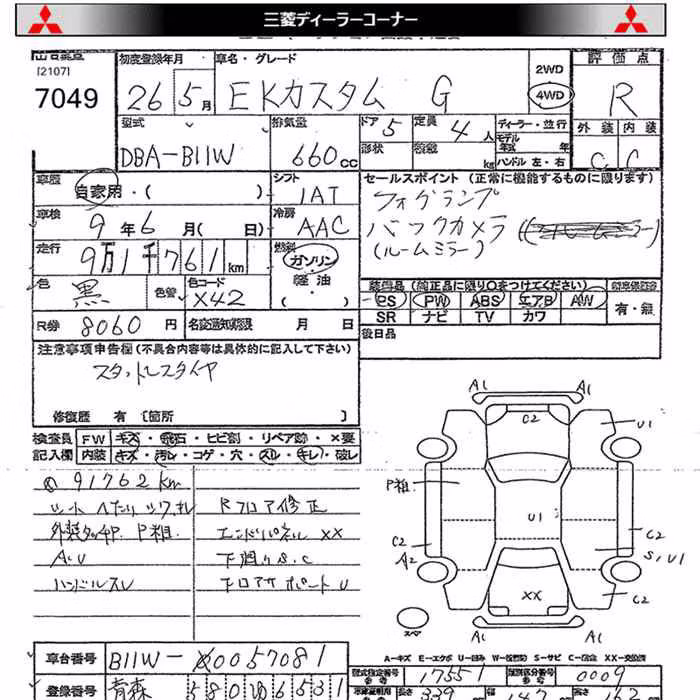 三菱ディーラーコーナー
[2107]
7049
初度登録年月
26 5月
車名・グレード
EKカスタム G
2WD
4WD
評価点
R
外装 内装
C C
型式
DBA-B11W
排気量
660cc
ドア 5
形状
定員 4人
積載 kg
ディーラー・並行
モデル年式 年
ハンドル 左・右
車歴
自家用・( )
シフト
1AT
車検
9年6月( 日)
冷房
AAC
走行
9万1千761km
燃料
ガソリン
軽油
( )
色 黒
色替
色コード
X42
R券 8060円
名変通知期限 月 日
セールスポイント (正常に機能するものに限ります)
フォグランプ
バックカメラ
(ルームミラー)
装備品(純正品に限り○をつけてください)
PS PW ABS エアB AW
SR ナビ TV カワ
有・無
後日品
注意事項申告欄(不具合内容等は具体的に記入して下さい)
スタットレスタイヤ
修復歴 有〔箇所 〕
検査員 FW キズ・飛石・ヒビ割・リペア跡・×要
記入欄 内装 キズ・汚レ・コゲ・穴・スレ・キレ・破レ
91762km
Rフロア修正
P粗
エンドパネルXX
AUU
下廻りS.C
ハンドルスレ
下ロアサポートU
A1 A1
C2
U1
P粗
U1
C2 A2
C2
S1U1
XX
C2
A1 A1
スペア
A-キズ E-エクボ U-凹み W-板金跡 S-サビ C-腐食 XX-交換済
車台番号 B11W-0057081
型式指定番号 17551
類別区分番号 0009
登録番号 青森 580
長さ 339